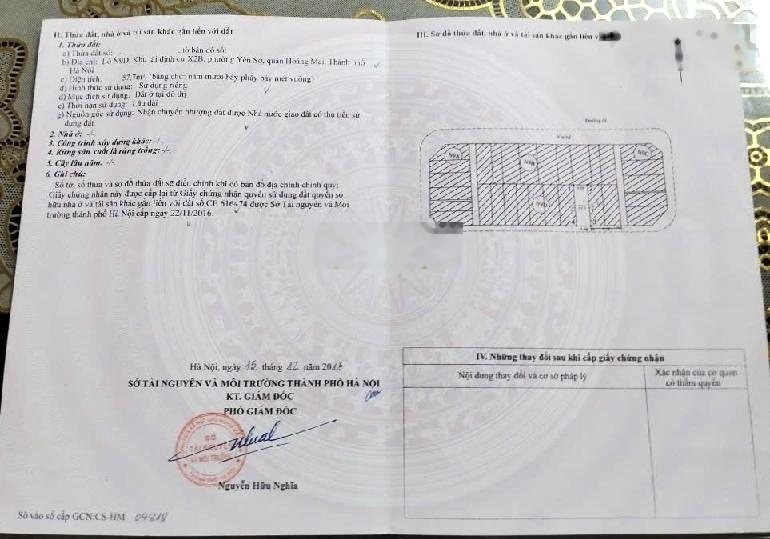 II. Thửa đất, nhà ở và tài sản khác gắn liền với đất
1. Thửa đất:
a) Thửa đất số: , tờ bản đồ số:
b) Địa chỉ: Lô N9D, Khu tái định cư X2B, phường Yên Sở, quận Hoàng Mai, Thành phố
Hà Nội
c) Diện tích: 57.7m² (bằng chữ: năm mươi bảy phẩy bảy mét vuông)
d) Hình thức sử dụng: Sử dụng riêng
đ) Mục đích sử dụng: Đất ở tại đô thị
e) Thời hạn sử dụng: Lâu dài
g) Nguồn gốc sử dụng: Nhận chuyển nhượng đất được Nhà nước giao đất có thu tiền sử
dụng đất
2. Nhà ở: -/-
3. Công trình xây dựng khác: -/-
4. Rừng sản xuất là rừng trồng: -/-
5. Cây lâu năm: -/-
6. Ghi chú:
Số tờ, số thửa và sơ đồ thửa đất sẽ điều chỉnh khi có bản đồ địa chính chính quy;
Giấy chứng nhận này được cấp lại từ Giấy chứng nhận quyền sử dụng đất quyền sở
hữu nhà ở và tài sản khác gắn liền với đất số được Sở Tài nguyên và Môi
trường thành phố Hà Nội cấp ngày 22/11/2016.
Hà Nội, ngày tháng 12 năm
SỞ TÀI NGUYÊN VÀ MÔI TRƯỜNG THÀNH PHỐ HÀ NỘI
KT. GIÁM ĐỐC
PHÓ GIÁM ĐỐC
SỞ
TÀI NGUYÊN
VÀ MÔI TRƯỜNG
Nguyễn Hữu Nghĩa
Số vào sổ cấp GCN:CS-HM
III. Sơ đồ thửa đất, nhà ở và tài sản khác gắn liền v
IV. Những thay đổi sau khi cấp giấy chứng nhận
Nội dung thay đổi và cơ sở pháp lý
Xác nhận của cơ quan
có thẩm quyền